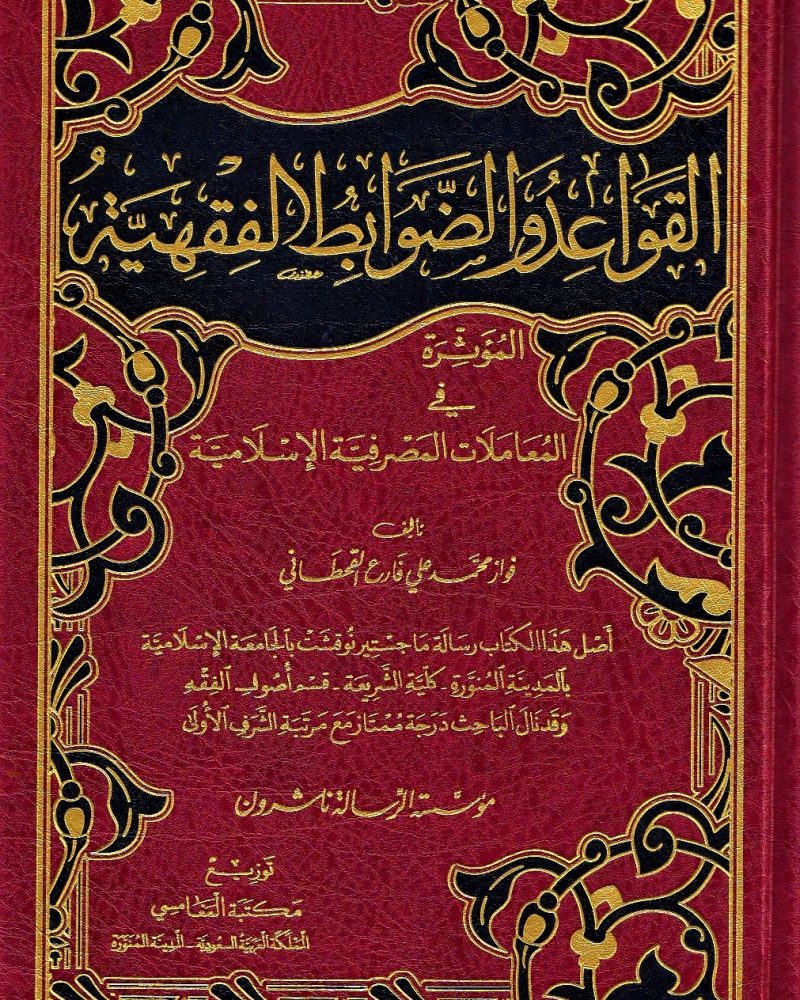 القَوَاعِدُ وَالضَّوَابِطُ الفِقْهِيَّةُ
المُؤَثِّرَة
في
المُعَامَلَات المَصْرِفِيَّة الإِسْلَامِيَّة
تأليف
فواز محمد علي فارع القحطاني
أَصْل هَذَا الكتاب رسَالة مَاجستِير نُوقشَتْ بالجَامعَة الإسْلَاميَّة
بالمَدِينَةِ المُنَوَّرَةِ - كلّيَّة الشَّريعَة - قسْم أُصُولِ الفِقْه
وَقَدْ نَالَ البَاحِثُ دَرَجَة مُمْتَاز مَعَ مَرتَبَةِ الشَّرفِ الأُولَى
مؤسسة الرسالة ناشرون
توزيع
مكتبة المغامسي
المملكة العربية السعودية - المدينة المنورة